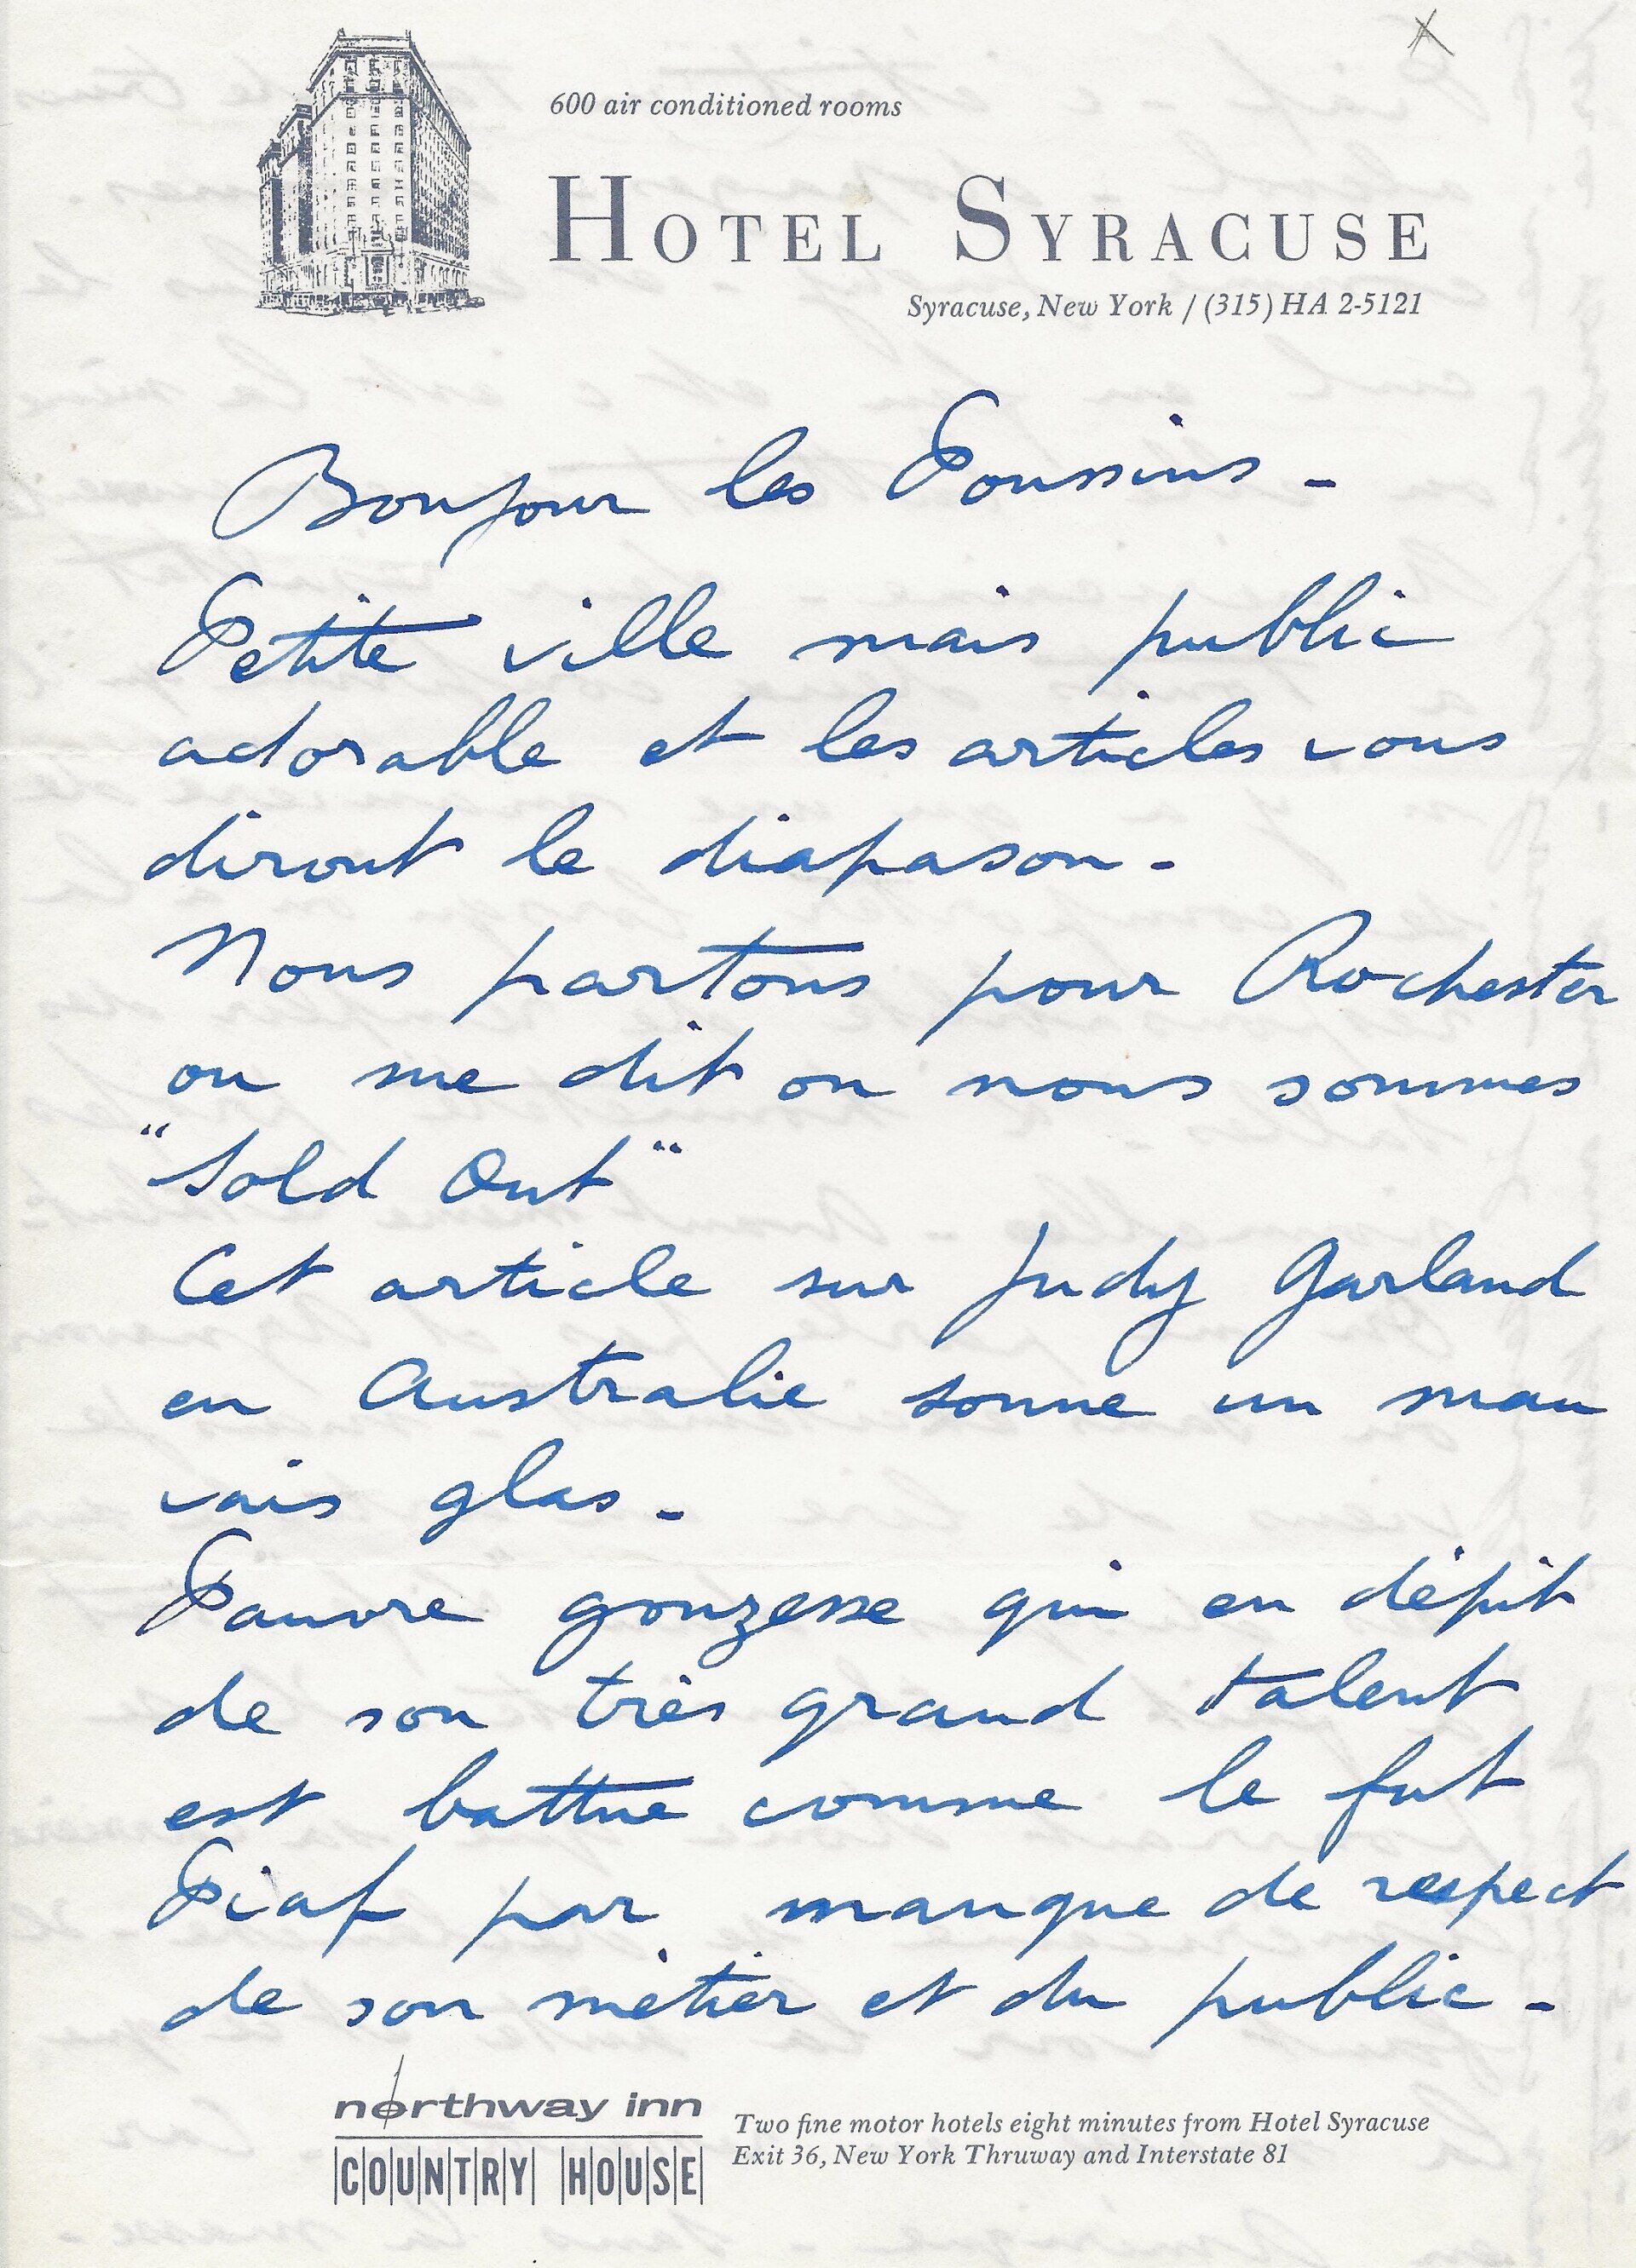 600 air conditioned rooms
HOTEL SYRACUSE
Syracuse, New York / (315) HA 2-5121
Bonjour les Poussins -
Petite ville mais public
adorable et les articles vous
diront le diapason -
Nous partons pour Rochester
ou me dit on nous sommes
"Sold Out"
Cet article sur Judy Garland
en Australie sonne un mau
vais glas -
Pauvre gouzesse qui en dépit
de son très grand talent
est battue comme le fut
Piaf par manque de respect
de son métier et du public -
northway inn
COUNTRY HOUSE
Two fine motor hotels eight minutes from Hotel Syracuse
Exit 36, New York Thruway and Interstate 81